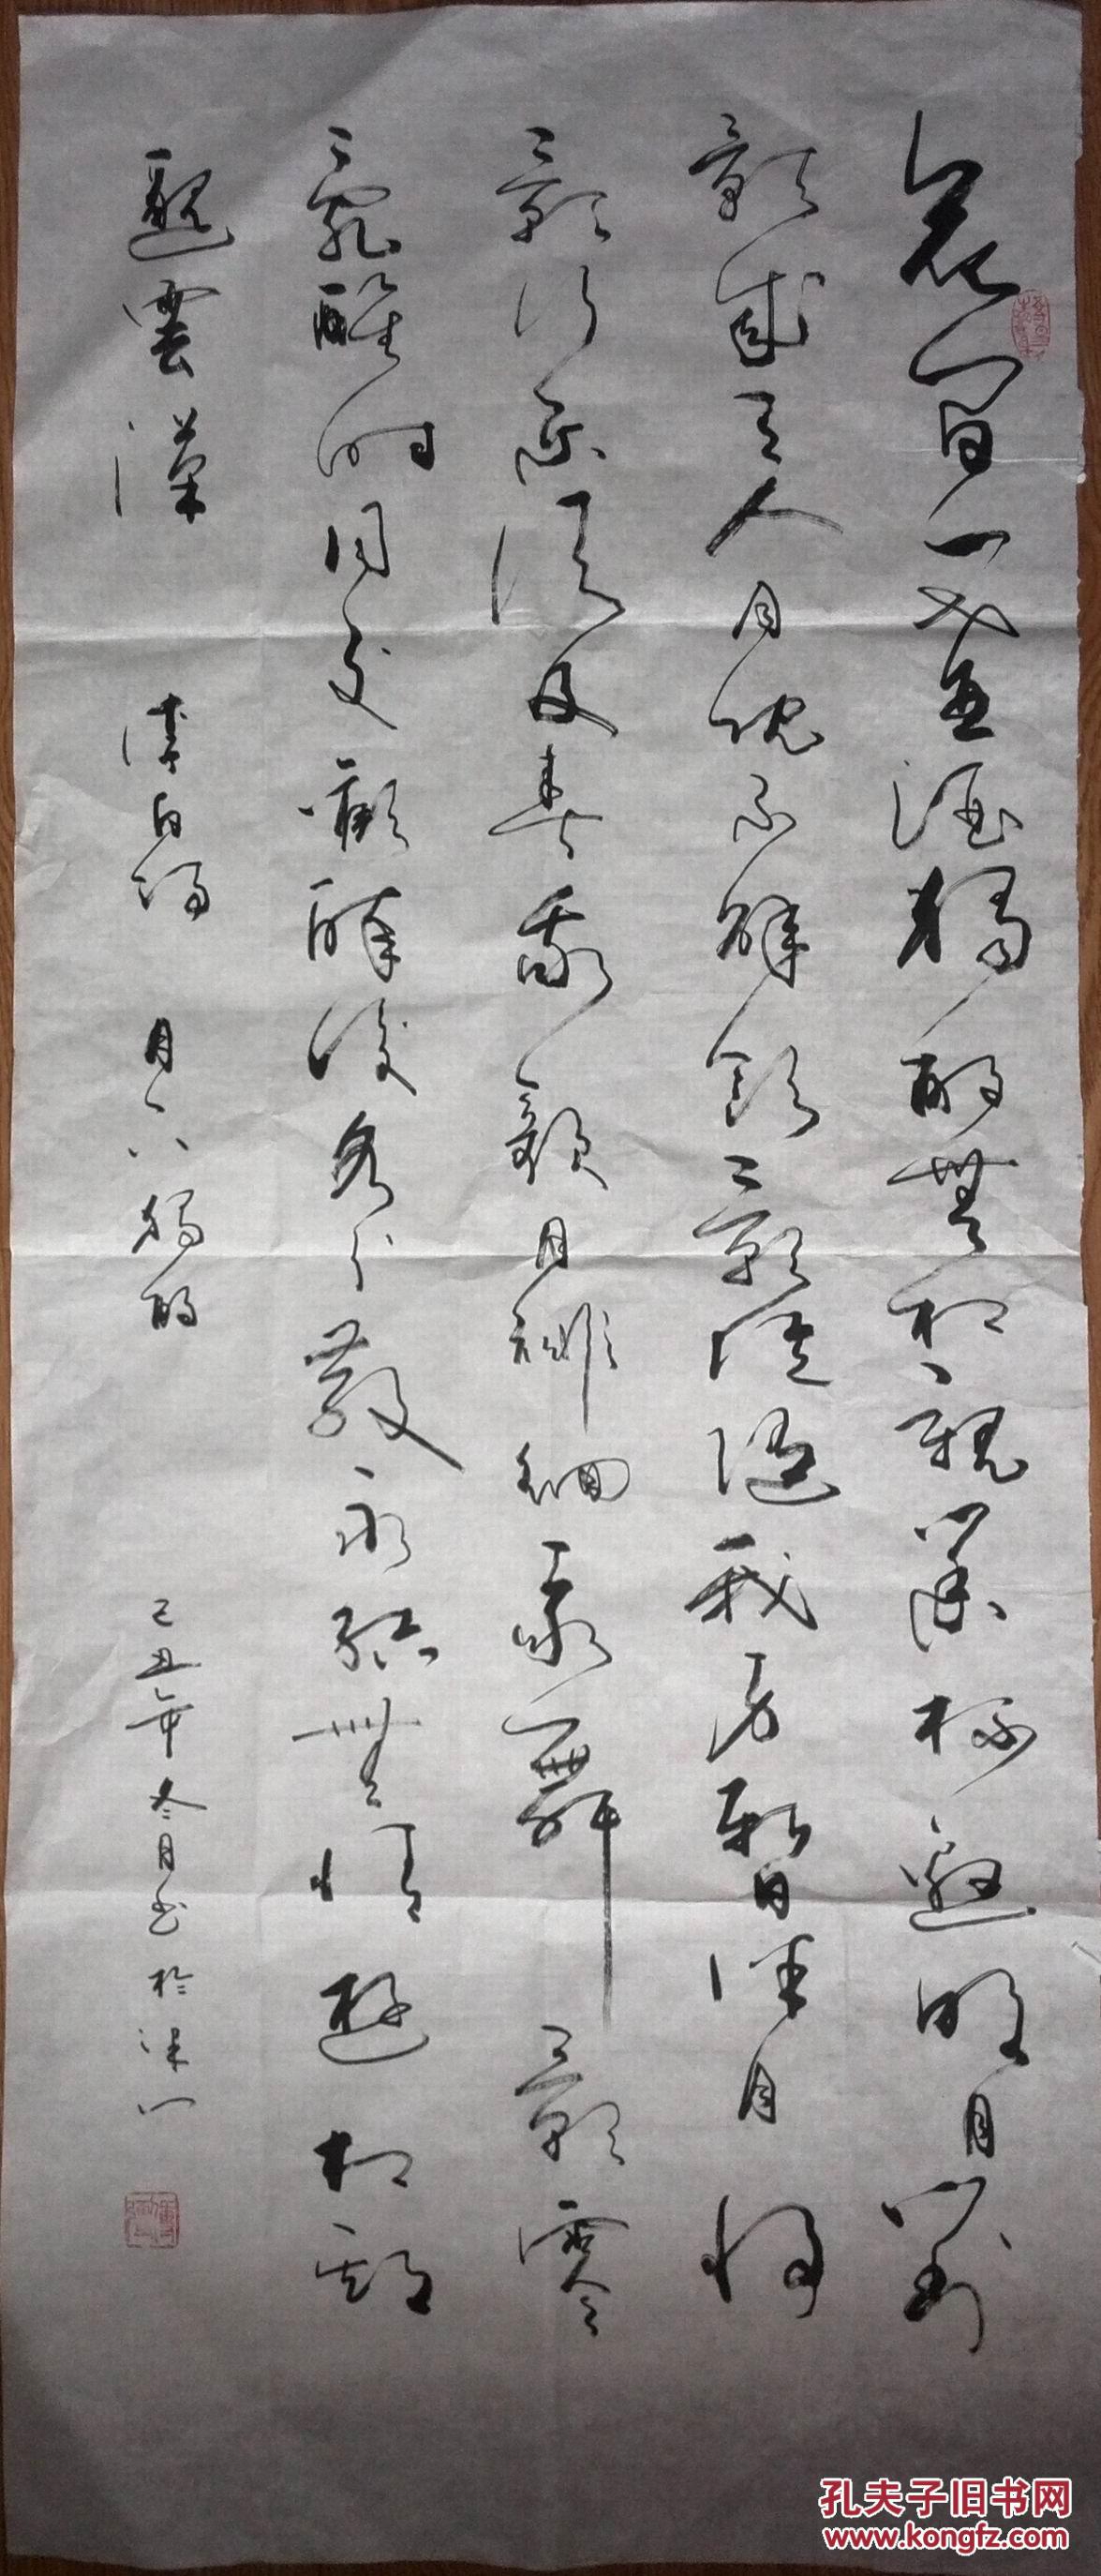 花間一壺酒獨酌無相親舉杯邀明月對
影成三人月既不解飲影徒隨我身暫伴月將
影行樂須及春我歌月徘徊我舞影零
亂醒時同交歡醉後各分散永結無情遊相期
邈雲漢 李白詩 月下獨酌 己丑年冬月書於津門
孔夫子旧书网
www.kongfz.com